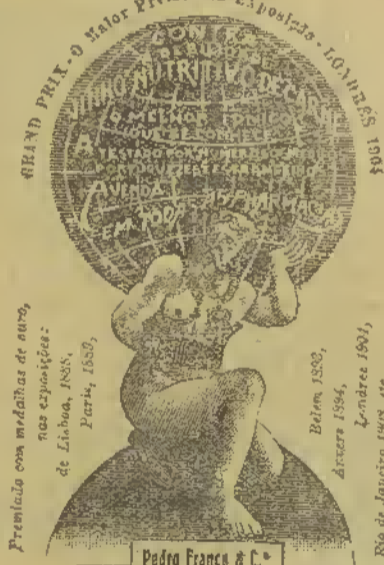 GRAND PRIX - O Maior Premio na Exposição - LONDRES 1904
CONTRA
A DEBILIDADE
VINHO NUTRITIVO DE CARNE
O MELHOR TONICO
QUE SE CONHECE
ATESTADO POR
A VENDA
EM TODAS AS PHARMACIAS
Premiado com medalhas de ouro,
nas exposições:
de Lisboa, 1888,
Paris, 1889,
Belem 1893,
Anvers 1894,
Londres 1904,
Rio de Janeiro
Pedro Franco & C.ª